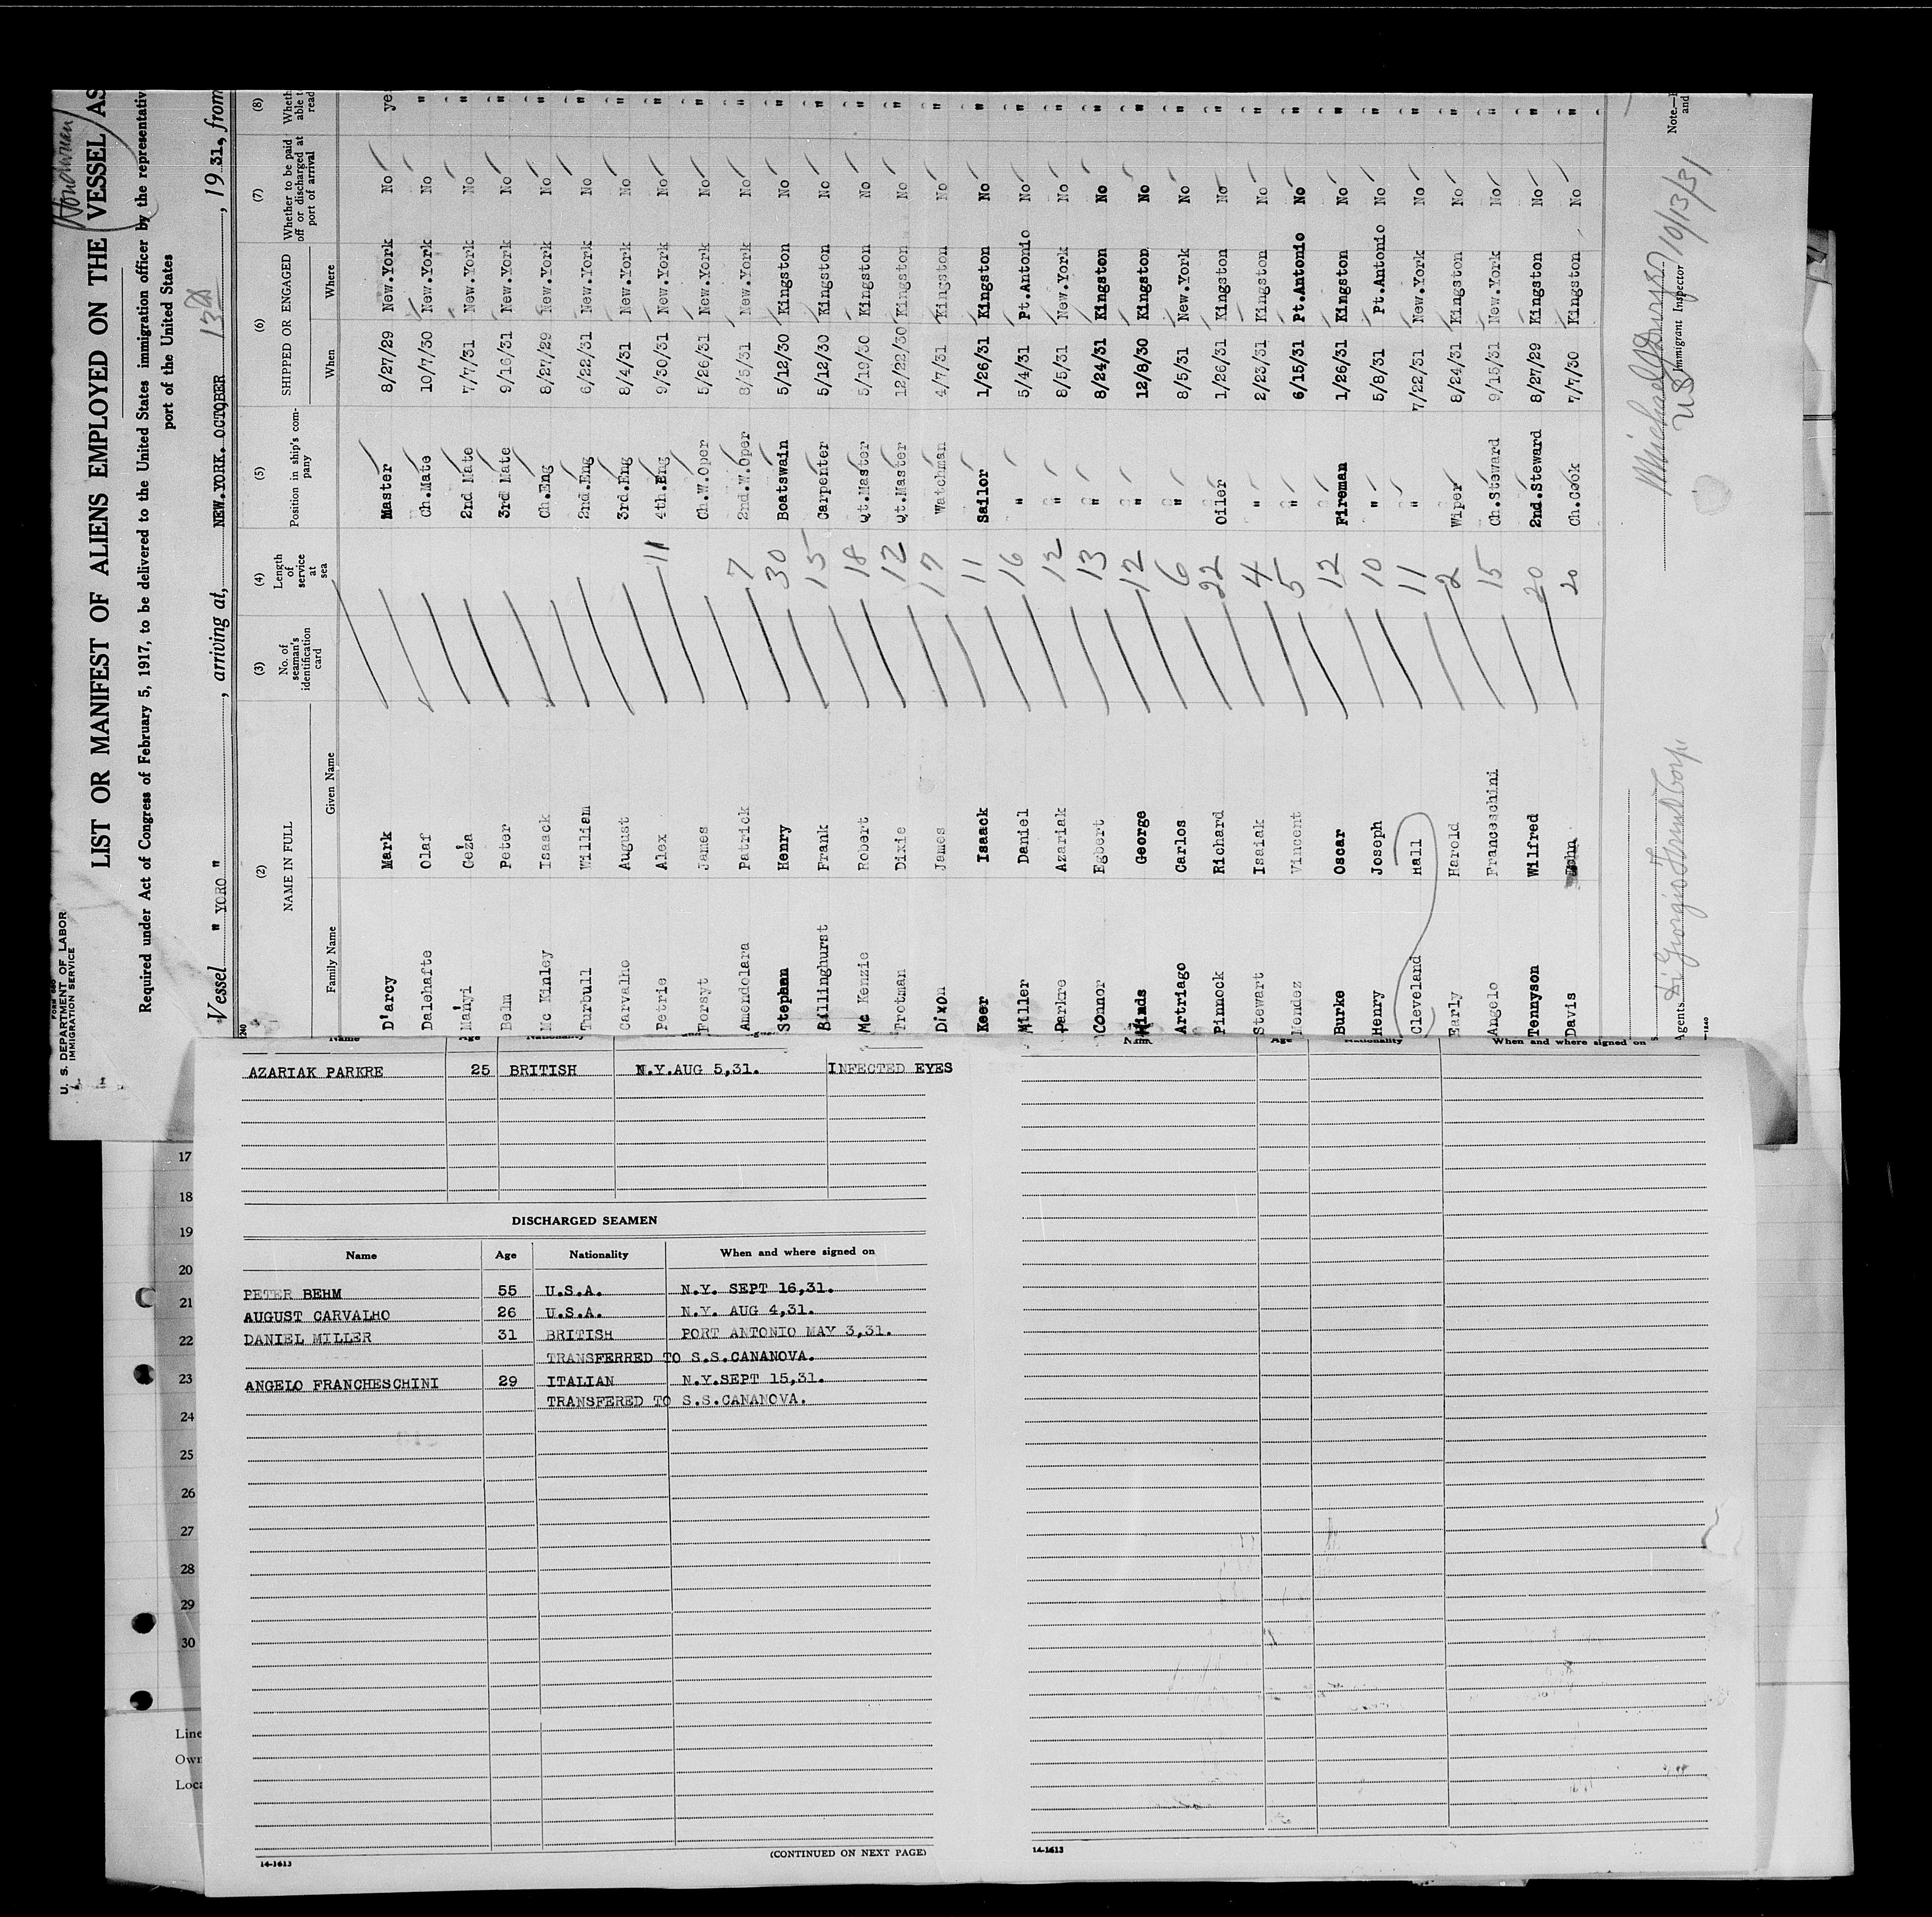 Honduran
FORM 680
U. S. DEPARTMENT OF LABOR
IMMIGRATION SERVICE
LIST OR MANIFEST OF ALIENS EMPLOYED ON THE VESSEL AS
Required under Act of Congress of February 5, 1917, to be delivered to the United States immigration officer by the representativ
port of the United States
Vessel " YORO " , arriving at, NEW.YORK. OCTOBER 13th , 1931, from
(2) (3) (4) (5) (6) (7) (8)
NAME IN FULL No. of seaman's identification card Length of service at sea Position in ship's company SHIPPED OR ENGAGED Whether to be paid off or discharged at port of arrival Wheth able t read
Family Name Given Name When Where
D'arcy Mark Master 8/27/29 New.York No ye
Dalehafte Olaf Ch.Mate 10/7/30 New.York No "
Manyi Geza 2nd Mate 7/7/31 New.York No "
Behm Peter 3rd Mate 9/16/31 New.York No "
Mc Kinley Isaack Ch.Eng 8/27/29 New.York No "
Turbull William 2nd.Eng 6/22/31 New.York No "
Carvalho August 3rd.Eng 8/4/31 New.York No "
Petrie Alex 11 4th.Eng 9/30/31 New.York No "
Forsyt James Ch.W.Oper 5/26/31 New.York No "
Amendolara Patrick 7 2nd.W.Oper 8/5/31 New.York No "
Stephan Henry 30 Boatswain 5/12/30 Kingston No "
Billinghurst Frank 15 Carpenter 5/12/30 Kingston No "
Mc Kenzie Robert 18 Qt.Master 5/19/30 Kingston No "
Trotman Dixie 12 Qt.Master 12/22/30 Kingston No "
Dixon James 17 Watchman 4/7/31 Kingston No "
Keer Isaack 11 Sailor 1/26/31 Kingston No "
Miller Daniel 16 " 5/4/31 Pt.Antonio No "
Parkre Azariak 12 " 8/5/31 New.York No "
Connor Egbert 13 " 8/24/31 Kingston No "
Hinds George 12 " 12/8/30 Kingston No "
Artriago Carlos 6 " 8/5/31 New.York No "
Pinnock Richard 22 Oiler 1/26/31 Kingston No "
Stewart Isaiak 4 " 2/23/31 Kingston No "
Mendez Vincent 5 " 6/15/31 Pt.Antonio No "
Burke Oscar 12 Fireman 1/26/31 Kingston No "
Henry Joseph 10 " 5/8/31 Pt.Antonio No "
Cleveland Hall 11 " 7/22/31 New.York No "
Early Harold 2 Wiper 8/24/31 Kingston No "
Angelo Franceschini 15 Ch.Steward 9/15/31 New.York No "
Tennyson Wilfred 20 2nd.Steward 8/27/29 Kingston No "
Davis John 20 Ch.Cook 7/7/30 Kingston No "
Agents Di Giorgio Fruit Corp
10/13/31
US Immigrant Inspector
Note.—
and
Name Age Nationality
AZARIAK PARKRE 25 BRITISH N.Y.AUG 5,31. INFECTED EYES
DISCHARGED SEAMEN
Name Age Nationality When and where signed on
PETER BEHM 55 U.S.A. N.Y. SEPT 16,31.
AUGUST CARVALHO 26 U.S.A. N.Y. AUG 4,31.
DANIEL MILLER 31 BRITISH PORT ANTONIO MAY 3,31.
TRANSFERRED TO S.S.CANANOVA.
ANGELO FRANCHESCHINI 29 ITALIAN N.Y.SEPT 15,31.
TRANSFERED TO S.S.CANANOVA.
(CONTINUED ON NEXT PAGE)
14-1613
Name Age Nationality When and where signed on
14-1613
17
18
19
20
21
22
23
24
25
26
27
28
29
30
Line
Own
Loca